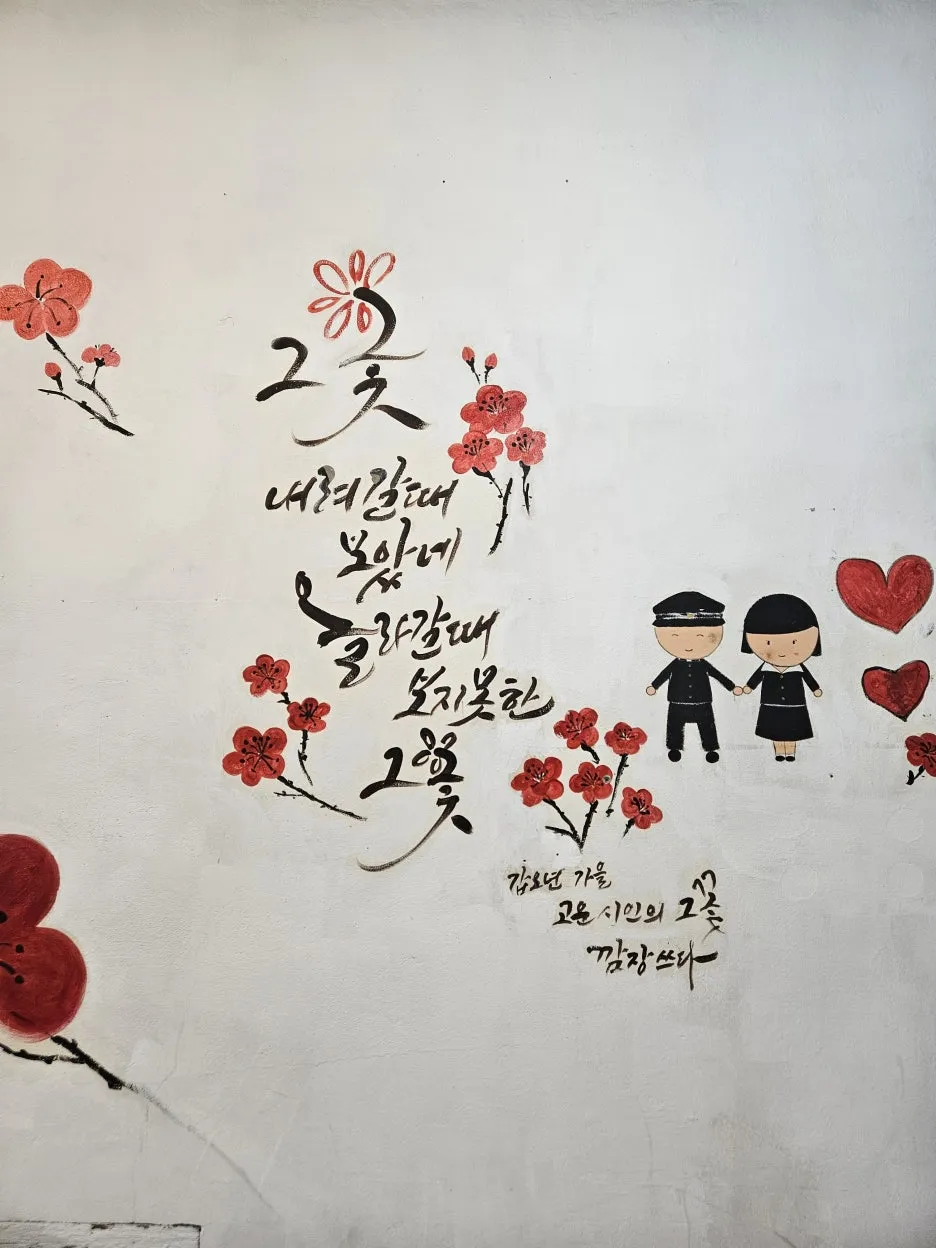 그 꽃
내려갈때
보았네
올라갈때
보지못한
그 꽃
갑오년 가을
고은 시인의 그 꽃
깜장 쓰다